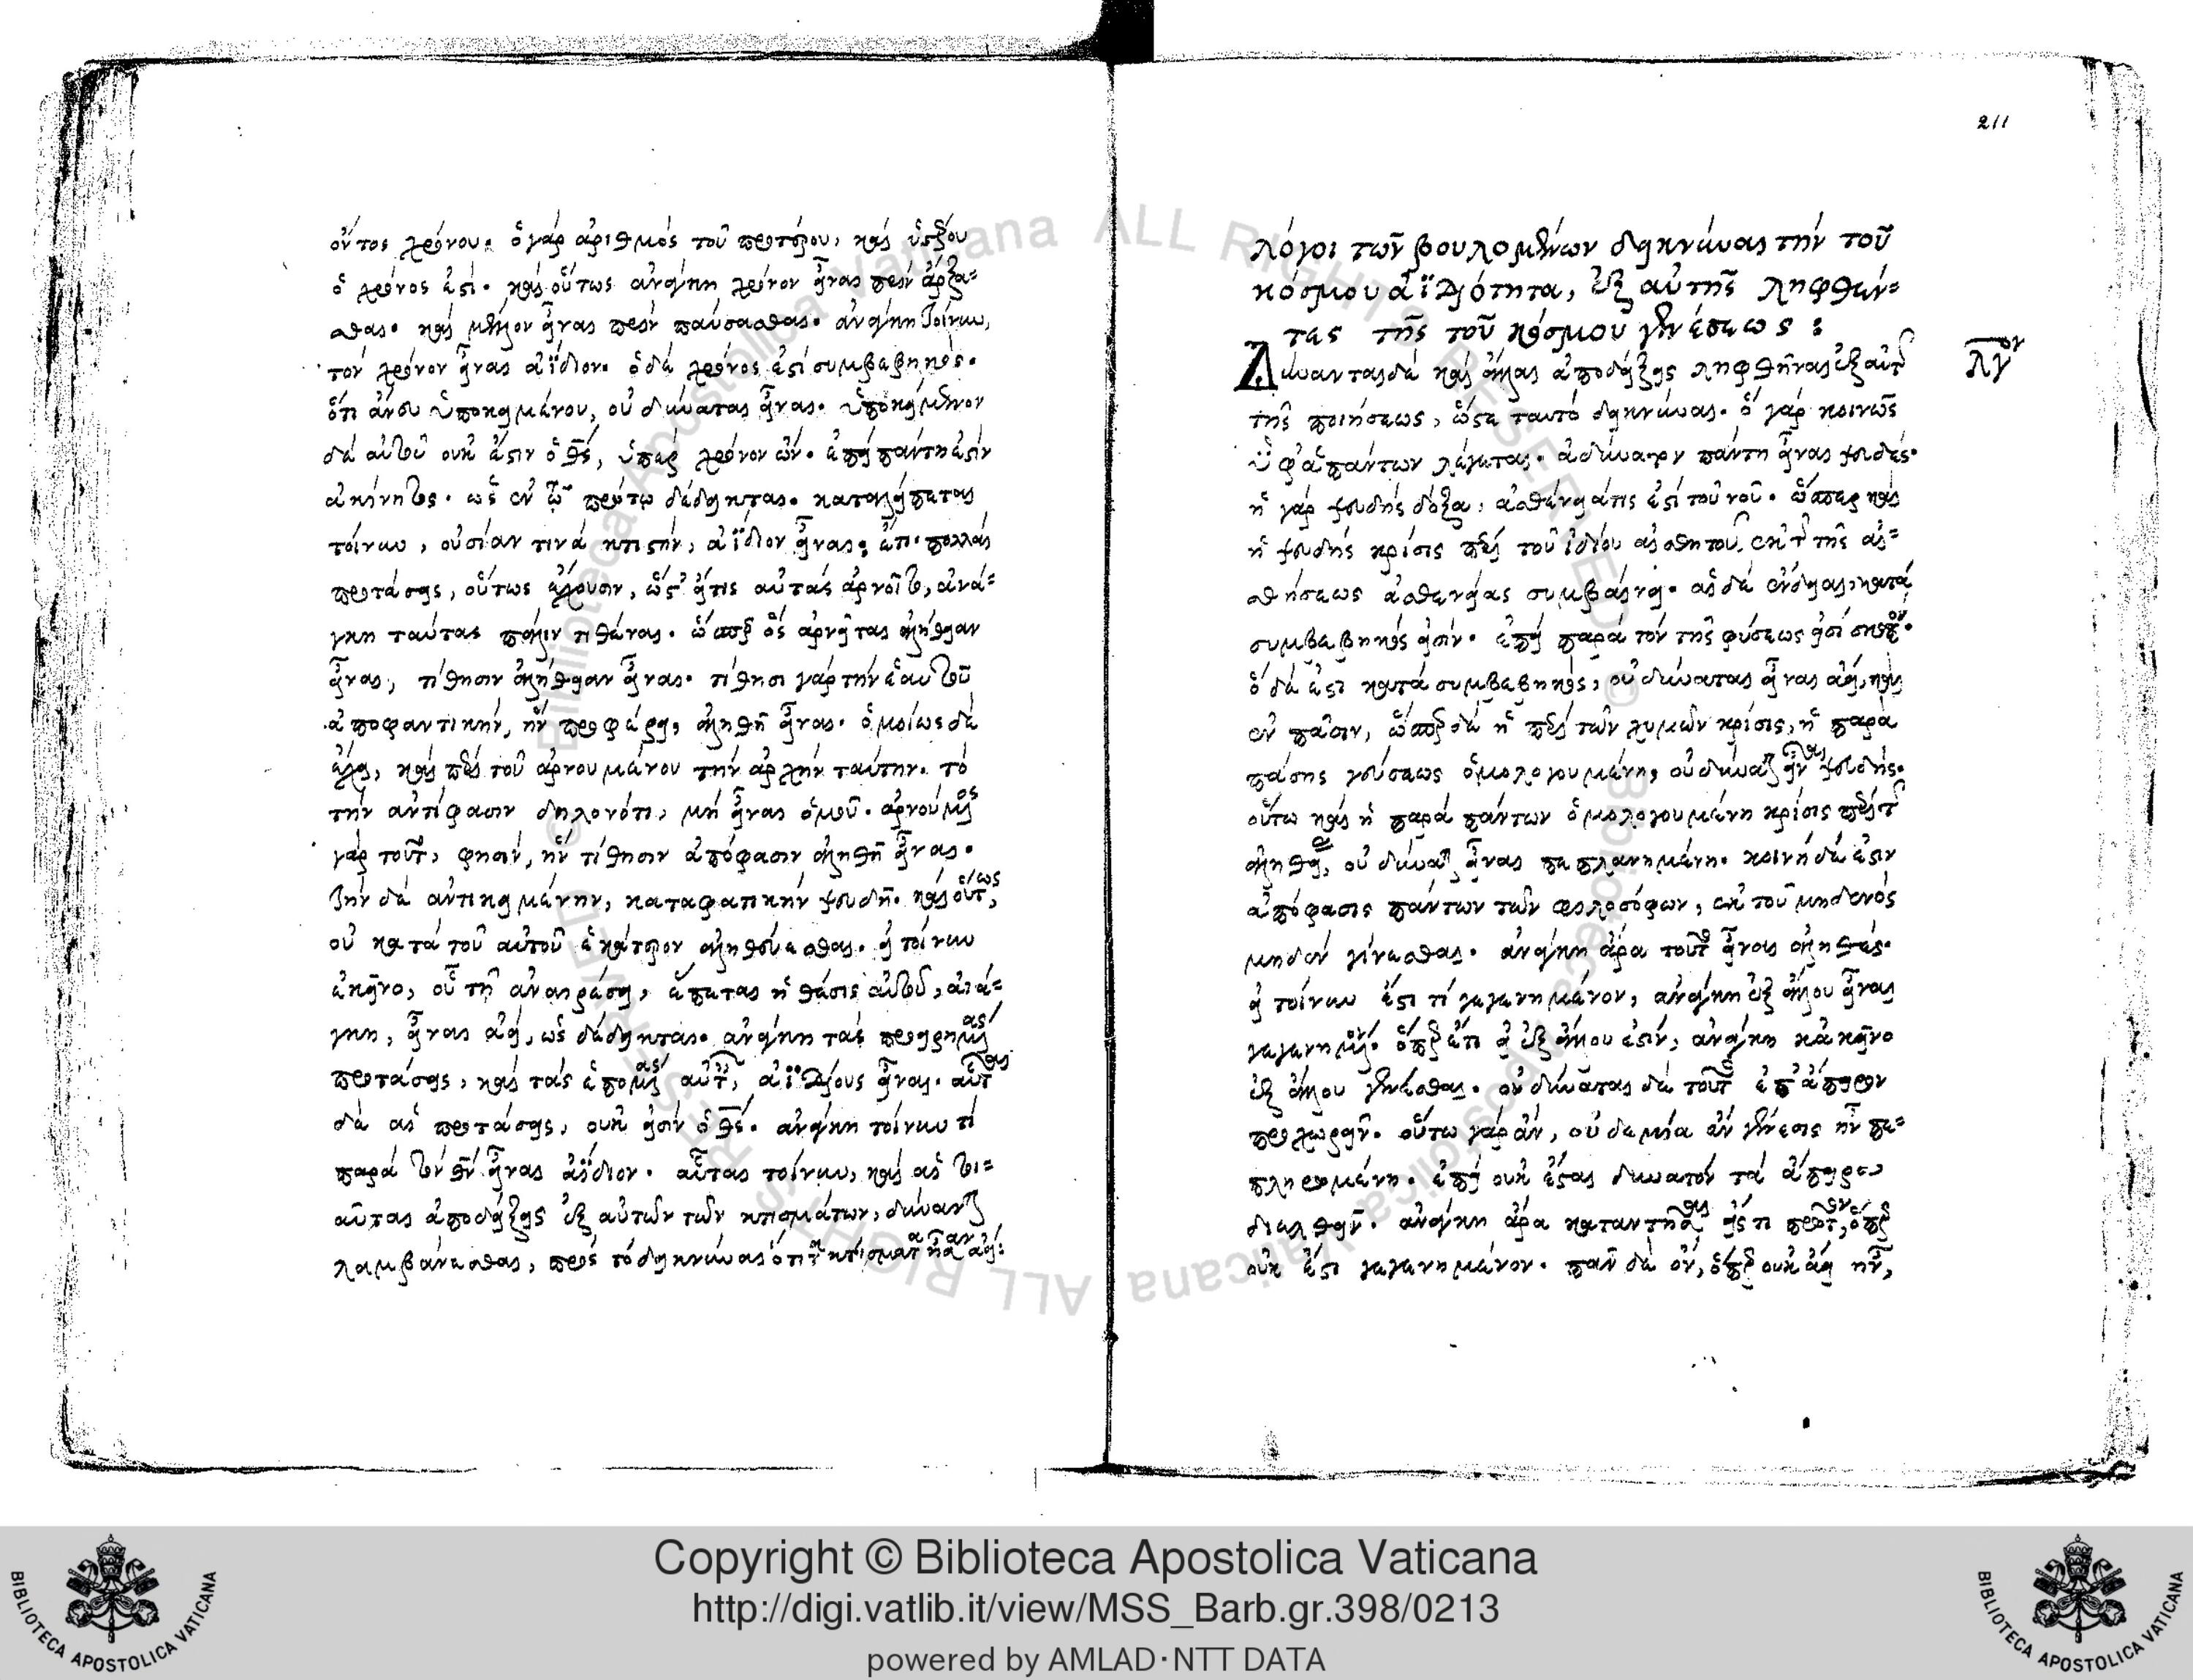 ὄντος χρόνου. ὁ γάρ ἀριθμός τοῦ προτέρου, καί ὑστέρου
ὁ χρόνος ἐστί. καί οὕτως ἀνάγκη χρόνον εἶναι πρίν ἄρξα=
σθαι. καί μέλλον εἶναι πρίν παύσασθαι. ἀνάγκη τοίνυν,
τόν χρόνον εἶναι ἀΐδιον. ὁ δέ χρόνος ἐστί συμβεβηκός.
ὅτι ἄνευ ὑποκειμένου, οὐ δύναται εἶναι. ὑποκείμενον
δέ αὐτοῦ οὐκ ἔστιν ὁ θς, ὑπέρ χρόνον ὤν. ἐπεί πάντη ἐστίν
ἀκίνητος. ὡς ἐν τῷ πρώτῳ δέδεικται. καταλείπεται
τοίνυν, οὐσίαν τινά κτιστήν, ἀΐδιον εἶναι: ἔτι πολλαί
προτάσεις, οὕτως ἔχουσιν, ὥστ' εἴτις αὐτάς ἀρνοῖτο, ἀνά=
γκη ταύτας πάλιν τιθέναι. ὥσπερ ὅς ἀρνεῖται ἀλήθειαν
εἶναι, τίθησιν ἀλήθειαν εἶναι. τίθησι γάρ τήν ἑαυτοῦ
ἀποφαντικήν, ἥν προφέρει, ἀληθῆ εἶναι. ὁμοίως δέ
ἔχει, καί περί τοῦ ἀρνουμένου τήν ἀρχήν ταύτην. τό
τήν ἀντίφασιν δηλονότι, μή εἶναι ὁμοῦ. ἀρνούμενος
γάρ τοῦτο, φησίν, ἥν τίθησιν ἀπόφασιν ἀληθῆ εἶναι.
τήν δέ ἀντικειμένην, καταφατικήν ψευδῆ. καί οὕτως,
οὐ κατά τοῦ αὐτοῦ ἑκάτερον ἀληθεύεσθαι. εἰ τοίνυν
ἐκεῖνο, οὗ τῇ ἀναιρέσει, ἕπεται ἡ θέσις αὐτοῦ, ἀνά=
γκη, εἶναι ἀεί, ὡς δέδεικται. ἀνάγκη τάς προειρημένας
προτάσεις, καί τάς ἑπομένας αὐταῖς, ἀϊδίους εἶναι. αὗται
δέ αἱ προτάσεις, οὐκ εἰσίν ὁ θς. ἀνάγκη τοίνυν τί
παρά τόν θν εἶναι ἀΐδιον. αὗται τοίνυν, καί αἱ τοι=
αῦται ἀποδείξεις ἐξ αὐτῶν τῶν κτισμάτων, δύνανται
λαμβάνεσθαι, πρός τό δεικνύναι ὅτι τά κτίσματα ἦσαν ἀεί:
211
λόγοι τῶν βουλομένων δεικνύναι τήν τοῦ
κόσμου ἀϊδιότητα, ἐξ αὐτῆς ληφθέν=
τες τῆς τοῦ κόσμου γενέσεως:
λγον
Δύνανται δέ καί ἄλλαι ἀποδείξεις ληφθῆναι ἐξ αὐτῆς
τῆς ποιήσεως, ὥστε ταυτό δεικνύναι. ὅ γάρ κοινῶς
ὑφ' ἁπάντων λέγεται. ἀδύνατον πάντη εἶναι ψευδές.
ἡ γάρ ψευδής δόξα, ἀσθένειά τις ἐστί τοῦ νοῦ. ὥσπερ καί
ἡ ψευδής κρίσις περί τοῦ ἰδίου αἰσθητοῦ, ἐκ τῆς τῆς αἰ=
σθήσεως ἀσθενείας συμβαίνει. αἱ δέ ἔνδειαι, κατά
συμβεβηκός εἰσίν. ἐπεί παρά τόν τῆς φύσεως εἰσί σκοπόν.
ὅ δέ ἐστι κατά συμβεβηκός, οὐ δύναται εἶναι ἀεί, καί
ἐν πᾶσιν, ὥσπερ δέ ἡ περί τῶν χυμῶν κρίσις, ἡ παρά
πάσης γεύσεως ὁμολογουμένη, οὐ δύναται εἶναι ψευδής.
οὕτω καί ἡ παρά πάντων ὁμολογουμένη κρίσις περί τῆς
ἀληθείας, οὐ δύναται εἶναι πεπλανημένη. κοινή δέ ἐστιν
ἀπόφασις πάντων τῶν φιλοσόφων, ἐκ τοῦ μηδενός
μηδέν γίνεσθαι. ἀνάγκη ἄρα τοῦτο εἶναι ἀληθές.
εἰ τοίνυν ἐστί τί γεγενημένον, ἀνάγκη ἐξ ἄλλου εἶναι
γεγενημένον. ὅπερ ἔτι εἰ ἐξ ἄλλου ἐστίν, ἀνάγκη κἀκεῖνο
ἐξ ἄλλου γενέσθαι. οὐ δύναται δέ τοῦτο ἐπ' ἄπειρον
προχωρεῖν. οὕτω γάρ ἄν, οὐδεμία ἄν γένεσις ἦν πε=
πληρωμένη. ἐπεί οὐκ ἔσται δυνατόν τά ἄπειρα
διελθεῖν. ἀνάγκη ἄρα καταντῆσαι εἴς τι πρῶτον, ὅπερ
οὐκ ἔστι γεγενημένον. πᾶν δέ ὄν, ὅπερ οὐκ ἀεί ἦν,
Copyright © Biblioteca Apostolica Vaticana
http://digi.vatlib.it/view/MSS_Barb.gr.398/0213
powered by AMLAD·NTT DATA